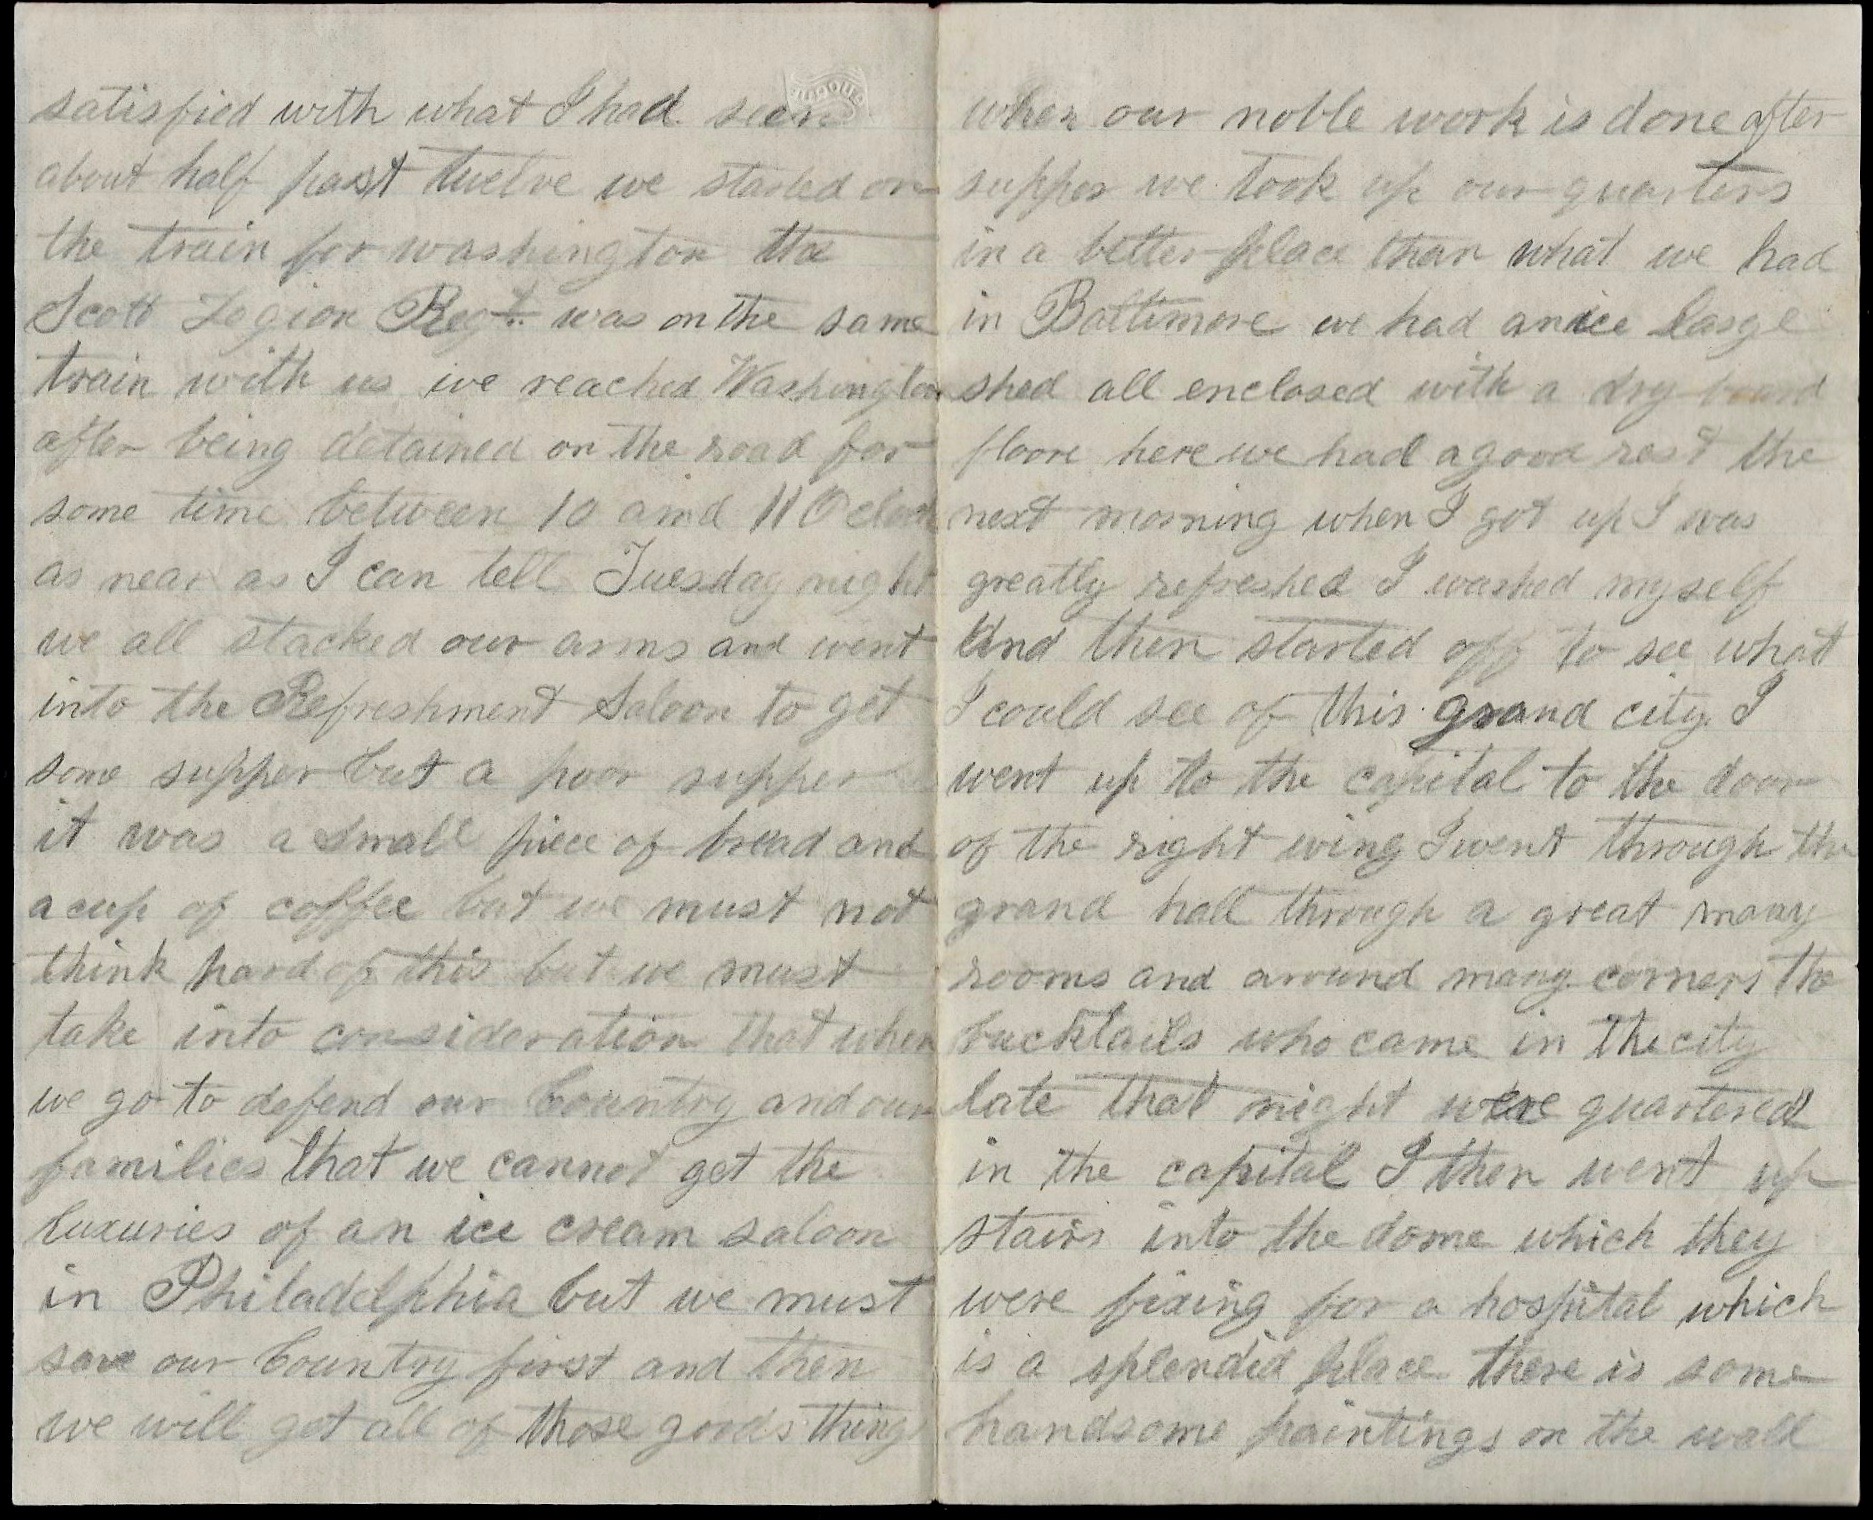 satisfied with what I had seen
about half past twelve we started on
the train for washington the
Scott Legion Regt. was on the same
train with us we reached Washington
after being detained on the road for
some time between 10 and 11 Oclock
as near as I can tell Tuesday night
we all stacked our arms and went
into the Refreshment Saloon to get
some supper but a poor supper
it was a small piece of bread and
a cup of coffee but we must not
think hard of this but we must
take into consideration that when
we go to defend our Country and our
families that we cannot get the
luxuries of an ice cream saloon
in Philadelphia but we must
save our Country first and then
we will get all of those goods things
when our noble work is done after
supper we took up our quarters
in a better place than what we had
in Baltimore we had anice large
shed all enclosed with a dry board
floore here we had a good rest the
next morning when I got up I was
greatly refreshed I washed myself
And then started off to see what
I could see of this grand city I
went up to the capital to the door
of the right wing I went through the
grand hall through a great many
rooms and around many corners the
bucktails who came in the city
late that night were quartered
in the capital I then went up
stairs into the dome which they
were fixing for a hospital which
is a splendid place there is some
handsome paintings on the wall